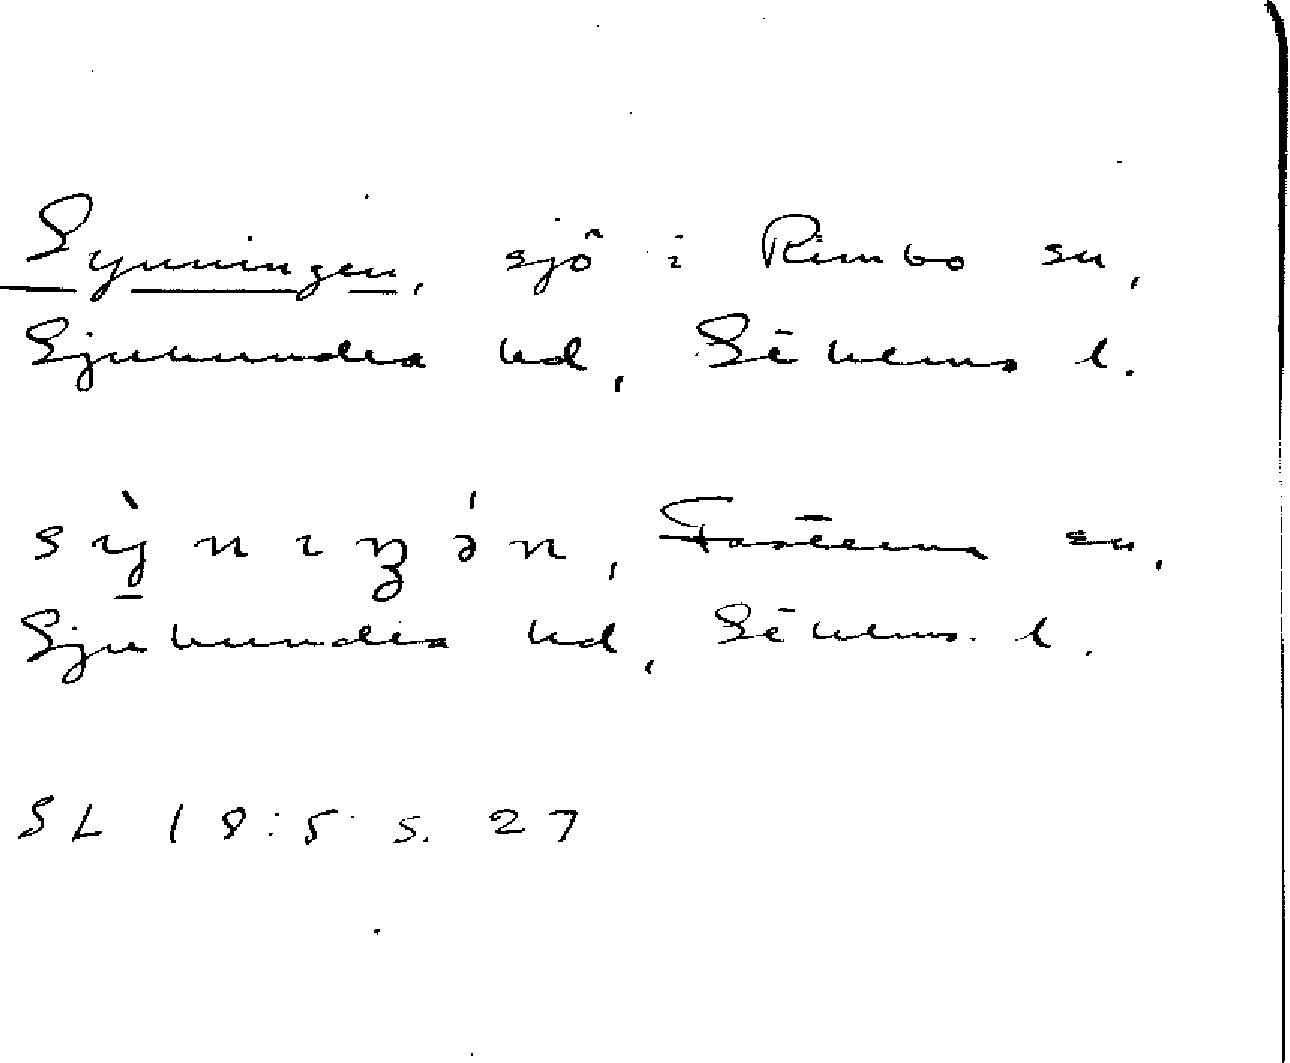 Synningen, sjö i Rimbo sn,
Sjuhundra hd, Sthlms l.
sỳnıŋən, Fasterna sn,
Sjuhundra hd, Sthlms. l.
SL 18:5 s. 27